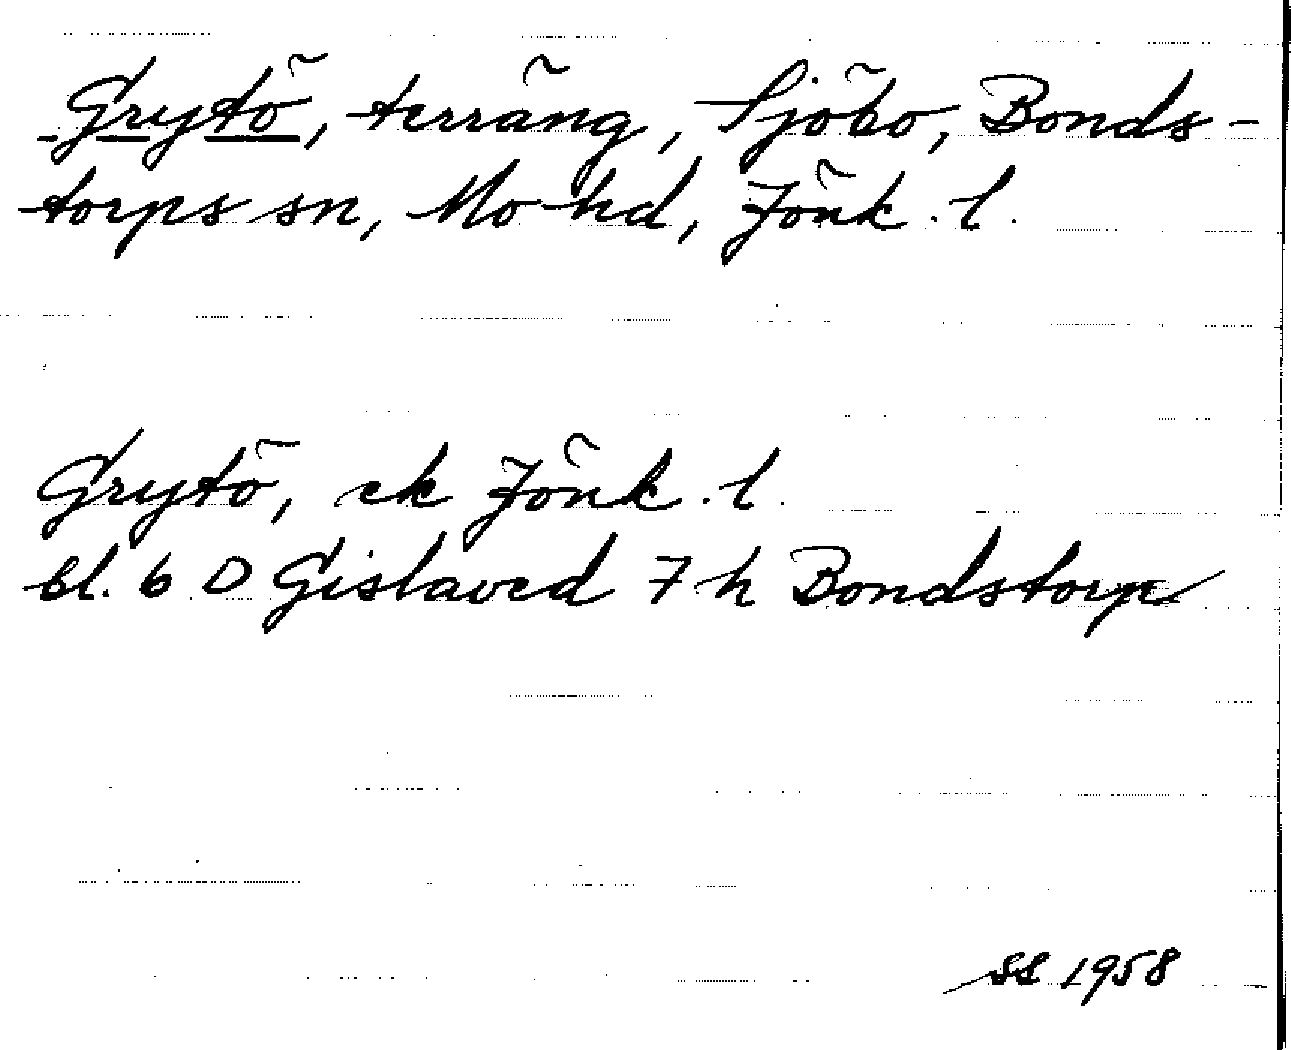 Grytö, terräng, Sjöbo, Bonds-
torps sn, Mo hd, Jönk. l.
Grytö, ek Jönk. l.
bl. 6 D Gislaved 7 h Bondstorp
SS 1958